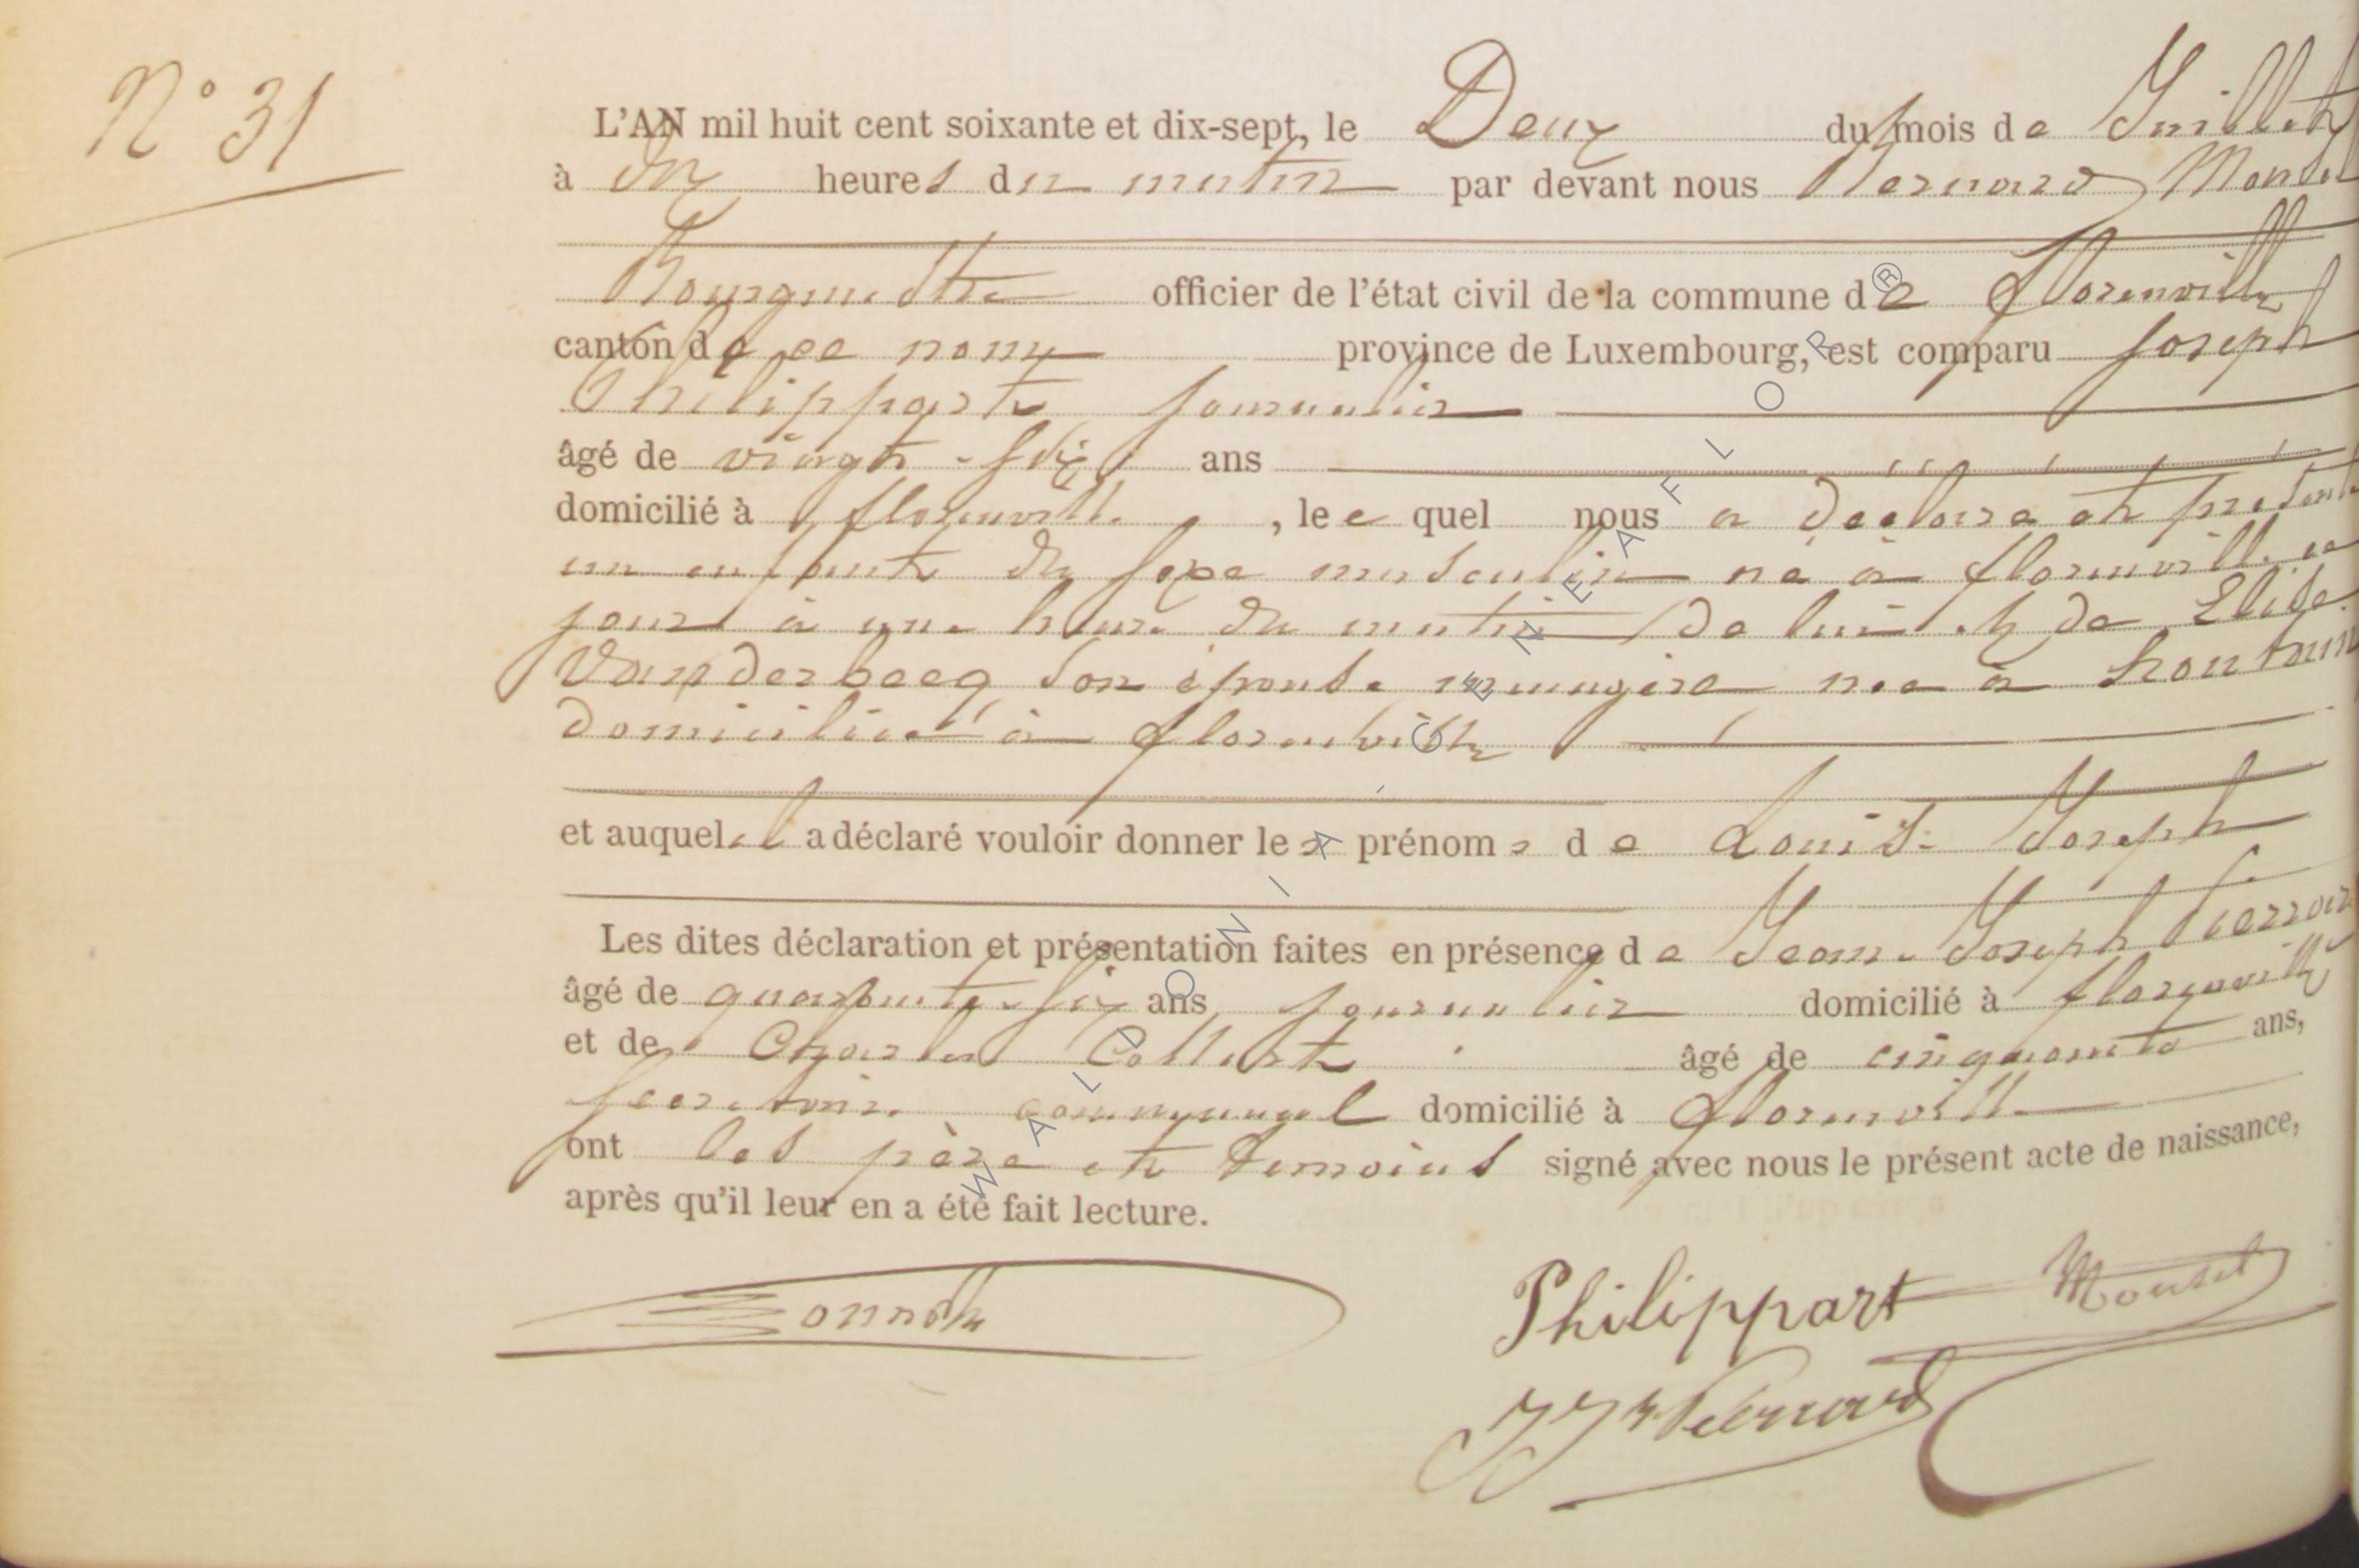 N° 31
L'AN mil huit cent soixante et dix-sept, le Deux du mois de Juillet
à dix heures du matin par devant nous Bernard
Bourgmestre officier de l'état civil de la commune de Florenville
canton de ce nom province de Luxembourg, est comparu Joseph
Philippart journalier
âgé de vingt-six ans
domicilié à florenville, lee quel nous a déclaré et présenté
un enfant du sexe masculin né à florenville ce
jour à une heure du matin de lui et de Elise
Vanderbecq son épouse ménagère née à
domiciliée à florenville
et auquel il a déclaré vouloir donner les prénoms de Louis Joseph
Les dites déclaration et présentation faites en présence de Jean-Joseph
âgé de quarante-six ans journalier domicilié à florenville
et de Charles Collert âgé de cinquante ans,
secrétaire communal domicilié à florenville
ont les père et témoins signé avec nous le présent acte de naissance,
après qu'il leur en a été fait lecture.
Philippart
WALLONIA - GENEAFLOR ®